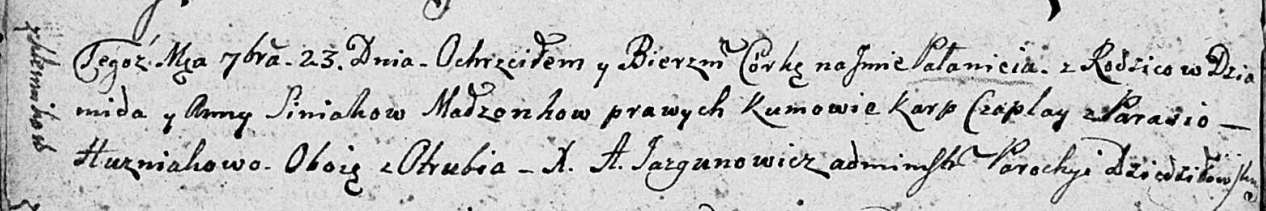 Tegoż Mca 7bra. 23. Dnia. Ochrzciłem y Bierzm Córkę na Jmie Pałanieia. z Rodzicow Dzia
mida y Anny Siniakow Madzonkow prawych Kumowie Karp Czaplay z Parasio —
Huzniakowo. Oboię z Otrubia — X. A. Jazgunowicz administr Parochyi Dziedziłow